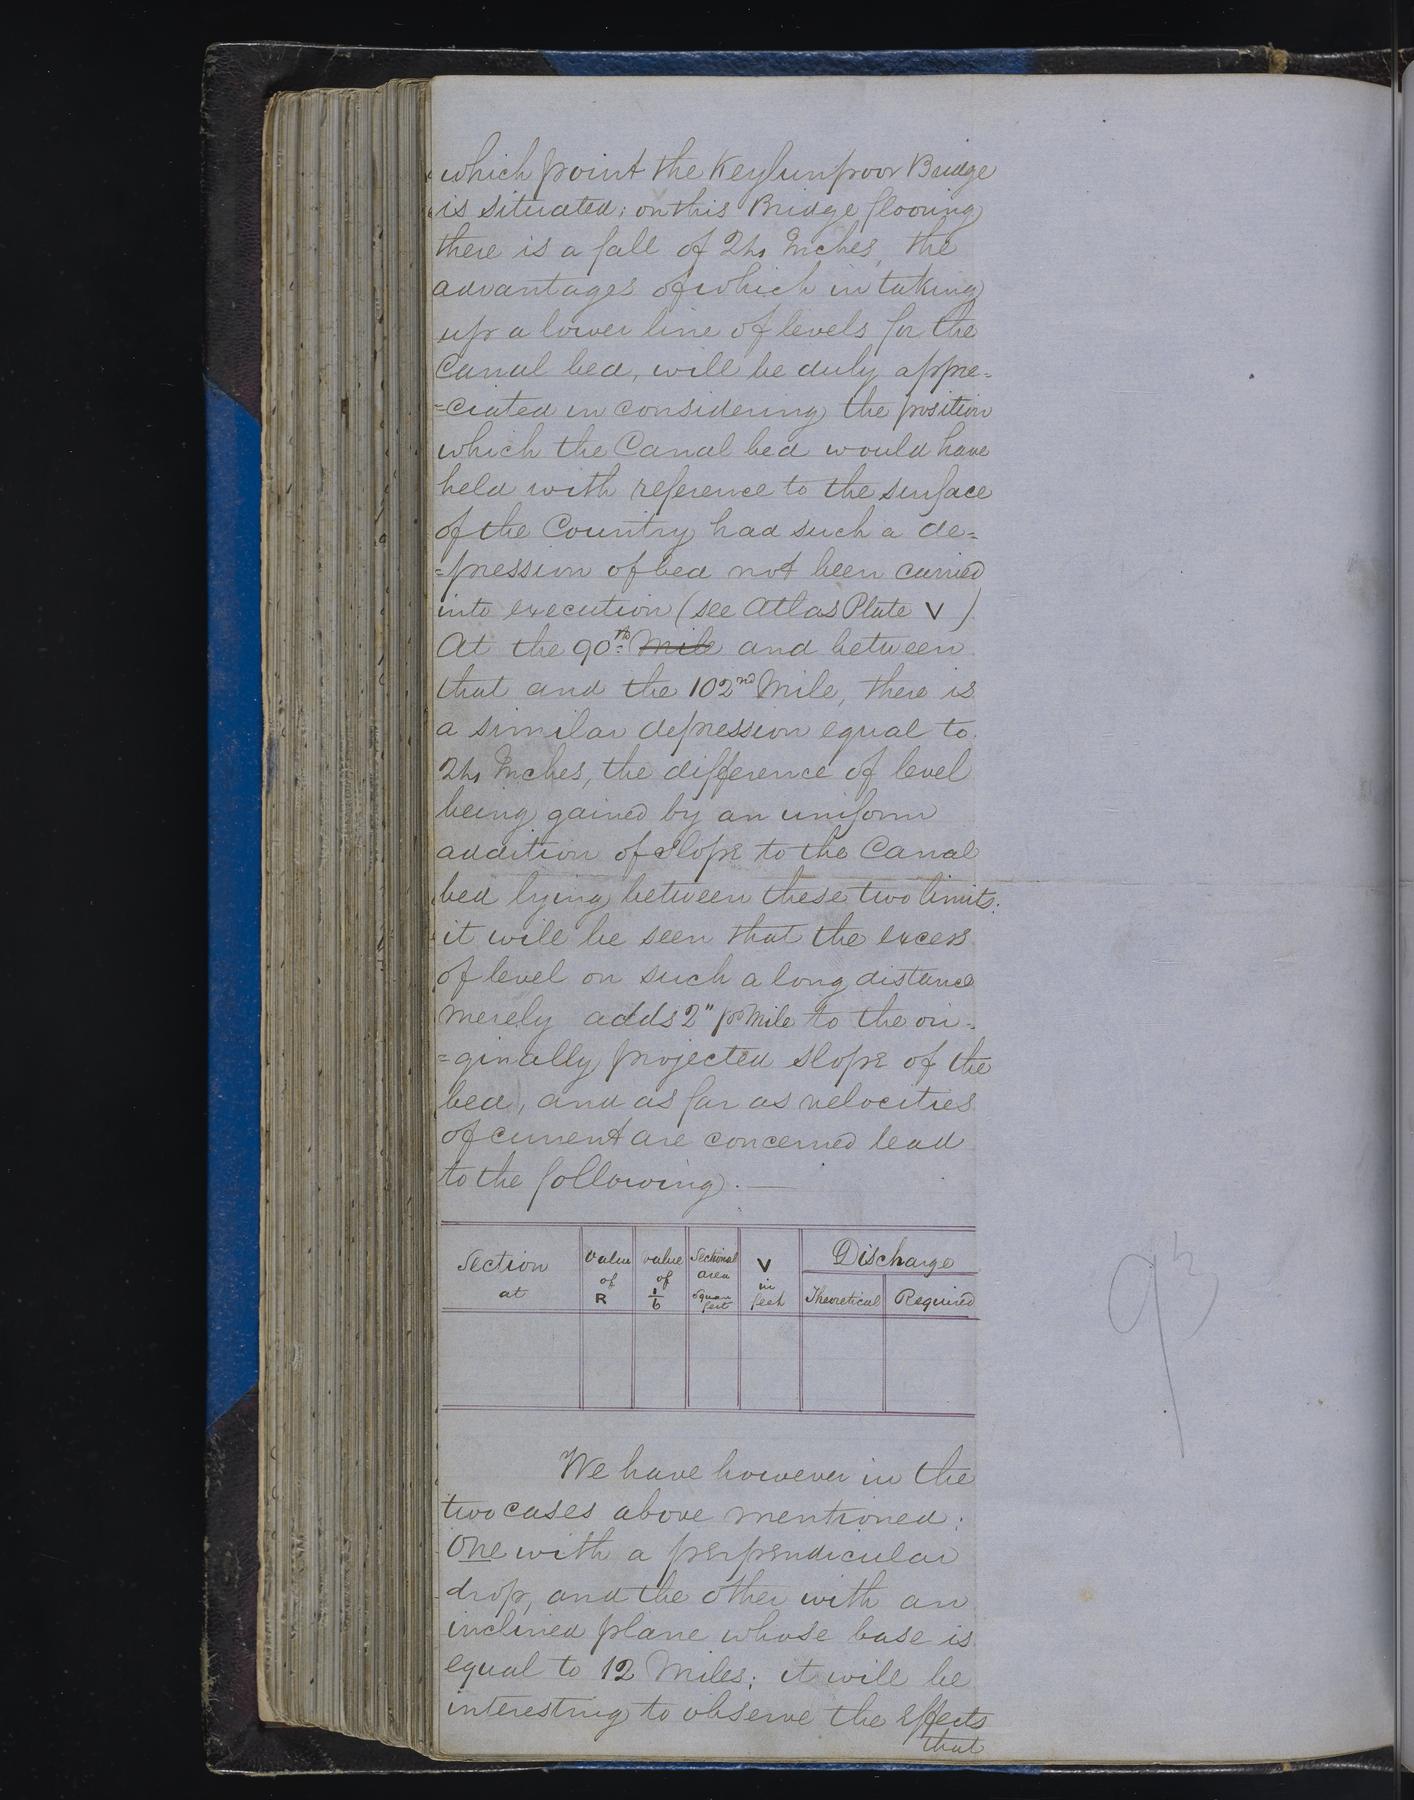 which point the Keylunpoor Bridge
is situated; on this Bridge flooring
there is a fall of 24 Inches, the
advantages of which in taking
up a lower line of levels for the
Canal bed, will be duly appre=
=ciated in considering the position
which the Canal bed would have
held with reference to the surface
of the Country had such a de=
=pression of bed not been carried
into execution (see Atlas Plate V )
At the 90th Mile and between
that and the 102nd Mile, there is
a similar depression equal to
24 Inches, the difference of level
being gained by an uniform
addition of slope to the Canal
bed lying between these two limits:
it will be seen that the excess
of level on such a long distance
merely adds 2" pr Mile to the ori=
=ginally projected slope of the
bed, and as far as velocities
of current are concerned lead
to the following. —
Section at
Value of R
Value of 1/6
Sectional area Square feet
V in feet
Discharge
Theoretical
Required
93
We have however in the
two cases above mentioned:
One with a perpendicular
drop, and the other with an
inclined plane whose base is
equal to 12 Miles; it will be
interesting to observe the effects
that